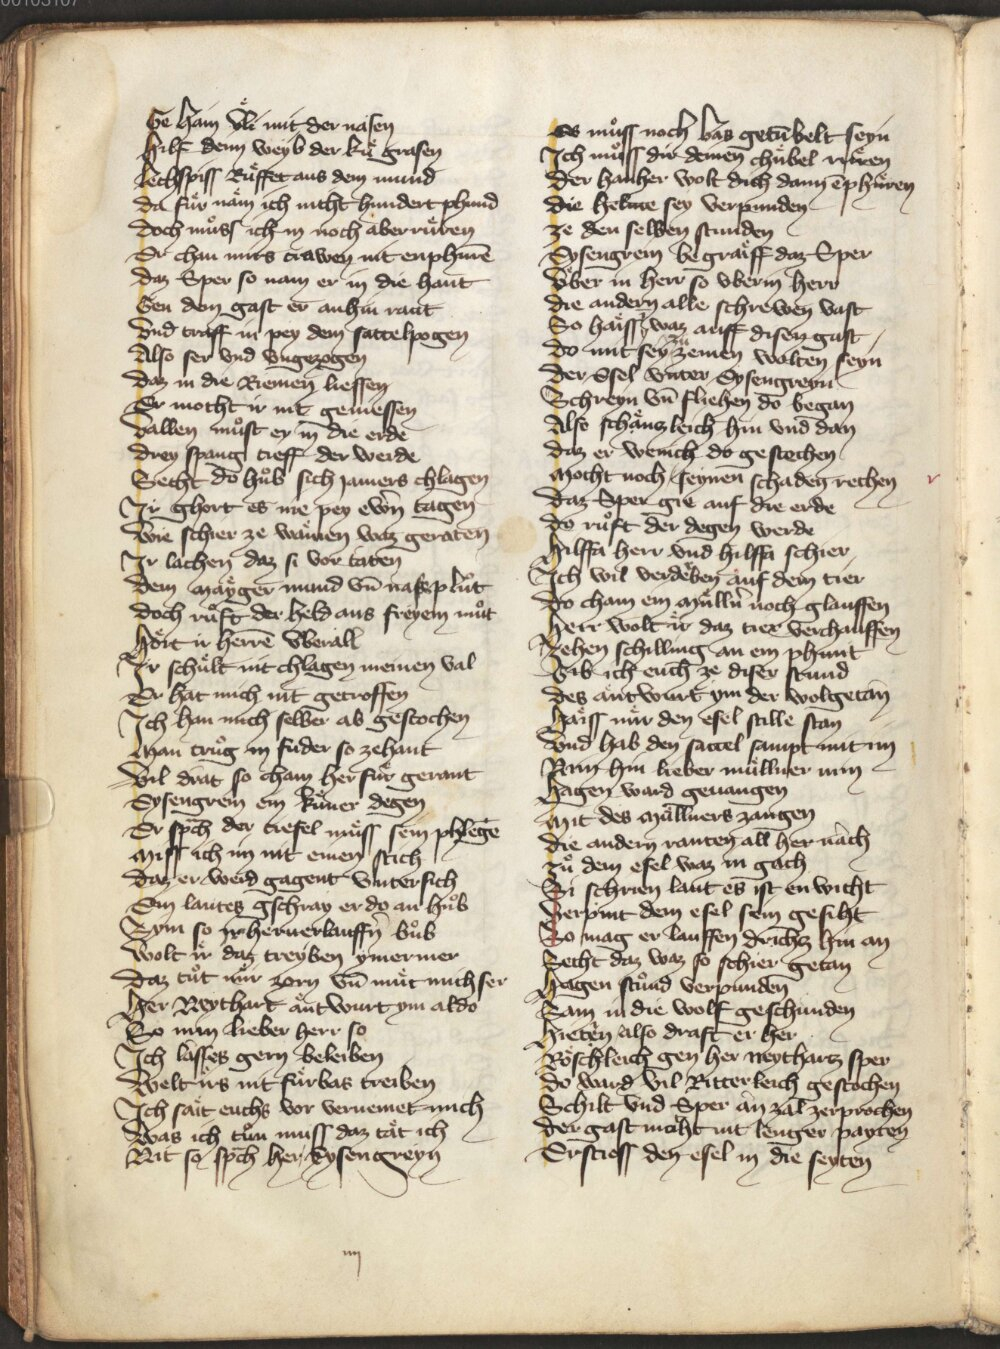 00103107
Ge haim Vͤli mit der nasen
Hilf deim weyb der kuͤ grasen
Lechspiss Ruͤffet aus dem mund
Da fuͤr naͤm ich nicht hundert phund
Doch muͦss ich in noch aber ruͤren
Er chan mirs trawen nit enphuͤrē
Daz Sper so nam er in die hant
Gen dem gast er anhin rant
Vnd traff in pey dem sattelpogen
Also ser vnd vngezogen
Daz in die Riemen liessen
Er mocht ir nit geniessen
Vallen muͦst er in die erde
Drey spang treff der werde
Secht do huͦb sich jamers chlagen
Ir ghort es nie pey ewrn tagen
Wie schier ze wainen waz geraten
Ir lachen daz si vor taten
Dem Mayger mund vn̄ nas plͦut
Doch ruͦft der held aus freyem muͦt
Hoͤrt ir herrē vberall
Ir schuͤlt nit chlagen meinen val
Er hat mich nit getroffen
Ich han mich selber ab gestochen
Man truͦg in fuder so zehant
Vil drat so cham her fuͤr gerant
Eysengrein ein kuͤner degen
Er sp̄ch der tiefel muͤss sein phlegē
Miss ich im nit einen stich
Daz er werd gagent vntersich
Ein lautes gschray er do an huͦb
Eyin so ir herverlauffn̄ buͦb
Wolt ir daz treyben ymermer
Daz tuͦt mir zorn vn̄ muͤt mich ser
Her Neythart antwurt ym aldo
So nain lieber herr so
Ich lasses gern beleiben
Welt irs nit fuͤrbas treiben
Ich sait euchs vor vernemet mich
Was ich tuͦn muss daz taͤt ich
Rit so sp̄ch her Eysengreyn
Es muͦss noch bas getūbelt seyn
Ich muͦss dir deinen chuͤbel ruͤren
Der hanher wolt dich dann ēphuͤren
Die helme sey verpunden
Ze den selben stunden
Eysengrein begraiff daz Sper
Vber in herr so vberin herr
Die andern alle schrewen vast
So haiss waz auff disen gast
Do mit sey zu zemen wolten seyn
Der Esel vnter Eysengreyn
Schreyn vn̄ fliehen do began
Also schaͤnzleich hin vnd dan
Daz er wenich do gestechen
Mocht noch seynen schaden rechen
Daz Sper gie auf die erde
Do ruͦft der degen werde
Hilffa herr vnd hilffa schier
Ich wil verderben auf dem tier
Do cham ein Muͤlln̄ noch glauffen
Herr wolt ir daz tier verchauffen
Zehen schilling an ein phunt
Gib ich euch ze diser stund
Des antwurt ym der wolgetan
Haiss mir den esel stille stan
Vnd hab den sattel sampt mit im
Nim hin lieber muͤllner min
Hagen ward gevangen
Mit des Muͤllners zangen
Die andern ranten all her nach
Zuͦ dem esel waz in gach
Si schrien laut es ist en wicht
Verpint dem esel sein gesiht
So mag er lauffen drichts hin an
Secht daz waz so schier getan
Hagen stuͦnd verpunden
Sam in die wolf geschunden
Hieten also draft er her
Roͤschleich gen her Neytharz sper
Do ward vil Ritterleich gestochen
Schilt vnd Sper an zal zerprochen
Der gast mocht nit lenger payten
Er stiess den esel in die seyten